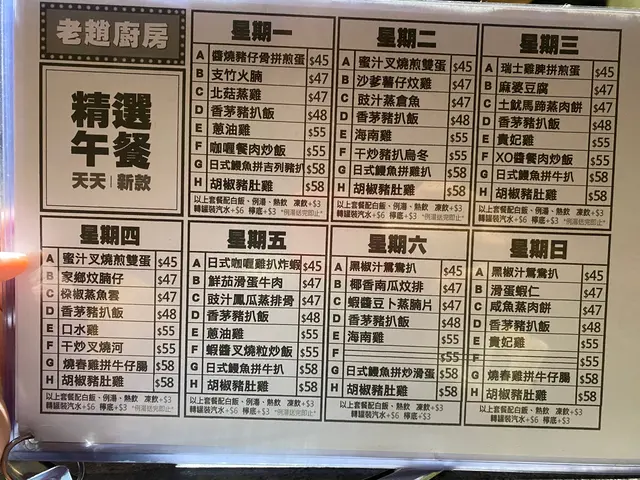 老趙廚房
精選
午餐
天天｜新款
星期一
A 醬燒豬仔骨拼煎蛋 $45
B 支竹火腩 $47
C 北菇蒸雞 $47
D 香茅豬扒飯 $48
E 蔥油雞 $55
F 咖喱餐肉炒飯 $55
G 日式鰻魚拼吉列豬扒 $58
H 胡椒豬肚雞 $58
以上套餐配白飯、例湯、熱飲 凍飲+$3
轉罐裝汽水+$6 檸底+$3 *例湯送完即止*
星期二
A 蜜汁叉燒煎雙蛋 $45
B 沙爹薯仔炆雞 $47
C 豉汁蒸倉魚 $47
D 香茅豬扒飯 $48
E 海南雞 $55
F 干炒豬扒烏冬 $55
G 日式鰻魚拼雞扒 $58
H 胡椒豬肚雞 $58
以上套餐配白飯、例湯、熱飲 凍飲+$3
轉罐裝汽水+$6 檸底+$3 *例湯送完即止*
星期三
A 瑞士雞脾拼煎蛋 $45
B 麻婆豆腐 $47
C 土魷馬蹄蒸肉餅 $47
D 香茅豬扒飯 $48
E 貴妃雞 $55
F XO醬餐肉炒飯 $55
G 日式鰻魚拼牛扒 $58
H 胡椒豬肚雞 $58
以上套餐配白飯、例湯、熱飲 凍飲+$3
轉罐裝汽水+$6 檸底+$3 *例湯送完即止*
星期四
A 蜜汁叉燒煎雙蛋 $45
B 家鄉炆腩仔 $47
C 椒蒸魚雲 $47
D 香茅豬扒飯 $48
E 口水雞 $55
F 干炒叉燒河 $55
G 燒春雞拼牛仔腸 $58
H 胡椒豬肚雞 $58
以上套餐配白飯、例湯、熱飲 凍飲+$3
轉罐裝汽水+$6 檸底+$3 *例湯送完即止*
星期五
A 日式咖喱雞扒炸蝦 $45
B 鮮茄滑蛋牛肉 $47
C 豉汁鳳瓜蒸排骨 $47
D 香茅豬扒飯 $48
E 蔥油雞 $55
F 蝦醬叉燒粒炒飯 $55
G 日式鰻魚拼牛扒 $58
H 胡椒豬肚雞 $58
以上套餐配白飯、例湯、熱飲 凍飲+$3
轉罐裝汽水+$6 檸底+$3 *例湯送完即止*
星期六
A 黑椒汁鴛鴦扒 $45
B 椰香南瓜炆排 $47
C 蝦醬豆卜蒸腩片 $47
D 香茅豬扒飯 $48
E 海南雞 $55
F $55
G 日式鰻魚拼炒滑蛋 $58
H 胡椒豬肚雞 $58
以上套餐配白飯、例湯、熱飲 凍飲+$3
轉罐裝汽水+$6 檸底+$3
星期日
A 黑椒汁鴛鴦扒 $45
B 滑蛋蝦仁 $47
C 咸魚蒸肉餅 $47
D 香茅豬扒飯 $48
E 貴妃雞 $55
F $55
G 燒春雞拼牛仔腸 $58
H 胡椒豬肚雞 $58
以上套餐配白飯、例湯、熱飲 凍飲+$3
轉罐裝汽水+$6 檸底+$3